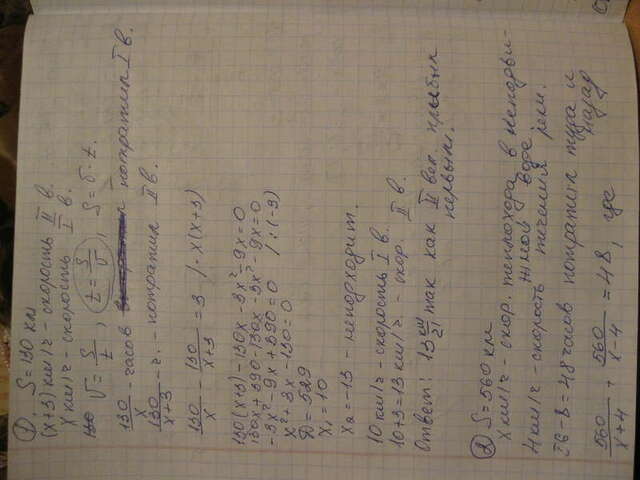 1. S=130 км
(x+3) км/ч - скорость II в.
x км/ч - скорость I в.
v = S/t, t = S/v, S = v·t.
130/x - часов потратил I в.
130/(x+3) - ч. - потратил II в.
130/x - 130/(x+3) = 3 /· x(x+3)
130(x+3) - 130x - 3x² - 9x = 0
130x + 390 - 130x - 3x² - 9x = 0
-3x² - 9x + 390 = 0 /:(-3)
x² + 3x - 130 = 0
D = 529
x₁ = 10
x₂ = -13 - неподходит.
10 км/ч - скорость I в.
10+3=13 км/ч. - скор. II в.
Ответ: 13 км/ч так как II вел. прибыл
первым.
2 S=560 км
x км/ч - скор. теплохода в неподви-
жной воде
4 км/ч - скорость течения реки.
56-8=48 часов потратил туда и
назад
560/(x+4) + 560/(x-4) = 48, где